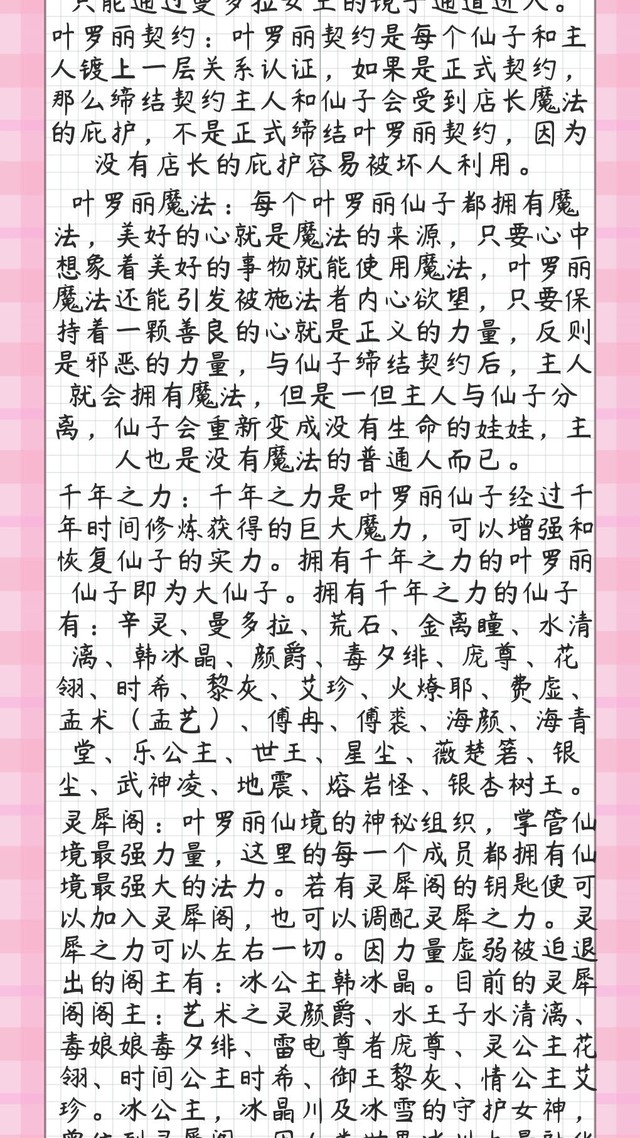 只能通过曼多拉女王的镜子通道进入。
叶罗丽契约：叶罗丽契约是每个仙子和主
人镀上一层关系认证，如果是正式契约，
那么缔结契约主人和仙子会受到店长魔法
的庇护，不是正式缔结叶罗丽契约，因为
没有店长的庇护容易被坏人利用。
叶罗丽魔法：每个叶罗丽仙子都拥有魔
法，美好的心就是魔法的来源，只要心中
想象着美好的事物就能使用魔法，叶罗丽
魔法还能引发被施法者内心欲望，只要保
持着一颗善良的心就是正义的力量，反则
是邪恶的力量，与仙子缔结契约后，主人
就会拥有魔法，但是一但主人与仙子分
离，仙子会重新变成没有生命的娃娃，主
人也是没有魔法的普通人而已。
千年之力：千年之力是叶罗丽仙子经过千
年时间修炼获得的巨大魔力，可以增强和
恢复仙子的实力。拥有千年之力的叶罗丽
仙子即为大仙子。拥有千年之力的仙子
有：辛灵、曼多拉、荒石、金离瞳、水清
漓、韩冰晶、颜爵、毒夕绯、庞尊、花
翎、时希、黎灰、艾珍、火燎耶、费虚、
孟术（孟艺）、傅冉、傅裘、海颜、海青
堂、乐公主、世王、星尘、薇楚箬、银
尘、武神凌、地震、熔岩怪、银杏树王。
灵犀阁：叶罗丽仙境的神秘组织，掌管仙
境最强力量，这里的每一个成员都拥有仙
境最强大的法力。若有灵犀阁的钥匙便可
以加入灵犀阁，也可以调配灵犀之力。灵
犀之力可以左右一切。因力量虚弱被迫退
出的阁主有：冰公主韩冰晶。目前的灵犀
阁阁主：艺术之灵颜爵、水王子水清漓、
毒娘娘毒夕绯、雷电尊者庞尊、灵公主花
翎、时间公主时希、御王黎灰、情公主艾
珍。冰公主，冰晶川及冰雪的守护女神，